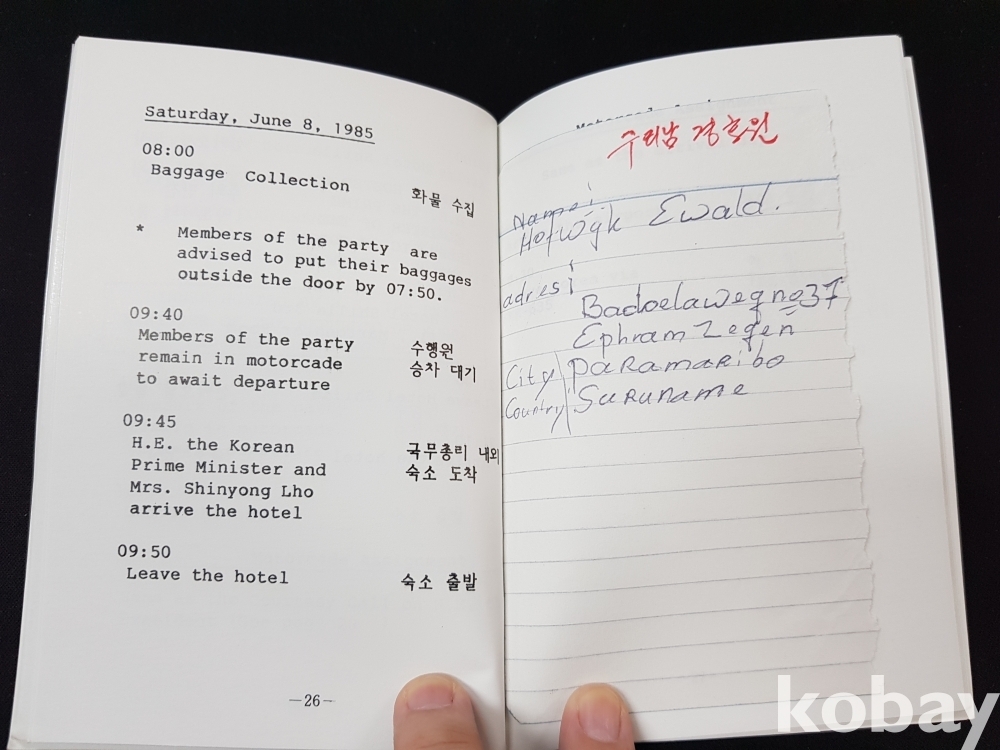 Saturday, June 8, 1985
08:00
Baggage Collection 화물 수집
* Members of the party are
advised to put their baggages
outside the door by 07:50.
09:40
Members of the party 수행원
remain in motorcade 승차 대기
to await departure
09:45
H.E. the Korean 국무총리 내외
Prime Minister and 숙소 도착
Mrs. Shinyong Lho
arrive the hotel
09:50
Leave the hotel 숙소 출발
—26—
수리남 경호원
Name:
Hofwijk Ewald.
adres:
Badoelaweg no 37
Ephram Zegen
City Paramaribo
Country Suruname
kobay